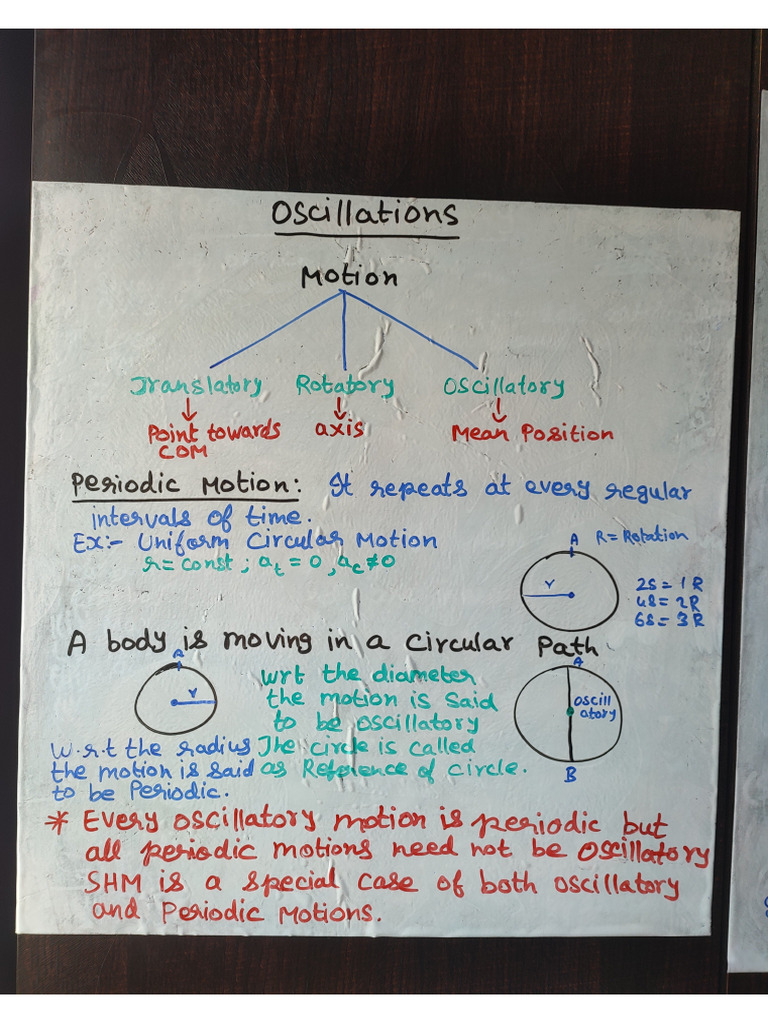 Oscillations
Motion
Translatory Rotatory Oscillatory
↓ ↓ ↓
Point towards COM axis Mean Position
Periodic Motion: It repeats at every regular
intervals of time.
Ex:- Uniform Circular Motion
r = const ; at = 0, ac ≠ 0
A R = Rotation
r
2S = 1R
4S = 2R
6S = 3R
A body is moving in a circular Path
A
r
W.r.t the radius
the motion is said
to be Periodic.
wrt the diameter
the motion is said
to be oscillatory
The circle is called
as Reference of circle.
A
oscill
atory
B
* Every oscillatory motion is periodic but
all periodic motions need not be oscillatory
SHM is a special case of both oscillatory
and Periodic Motions.